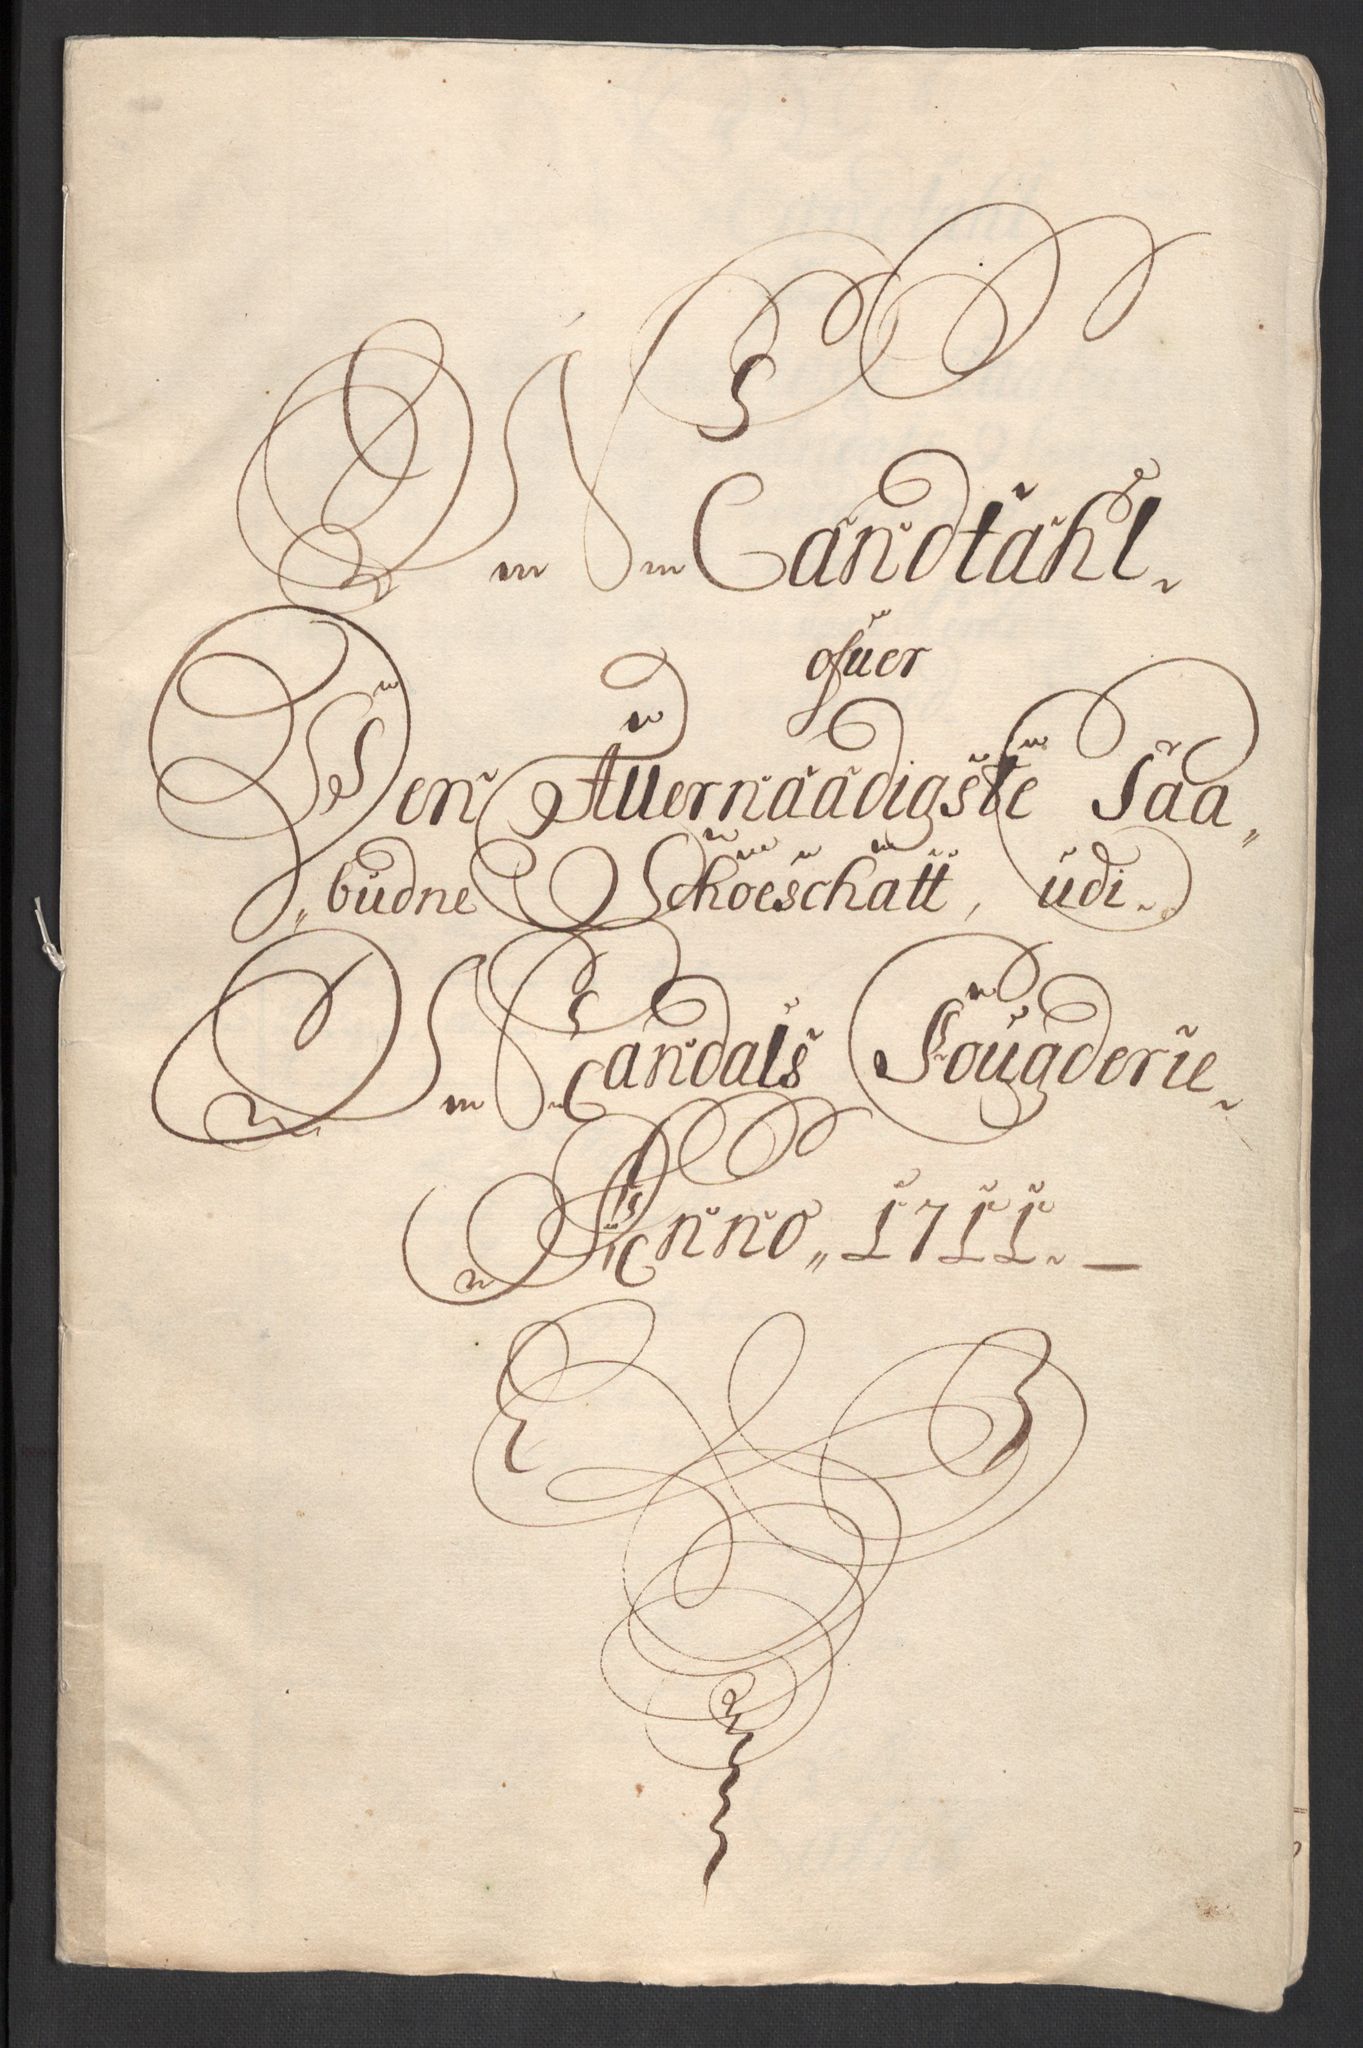 Mandtahl
ofuer
Den Allernaadigste Paa„
„budne Schoeschatt, udi
Mandals Fougderie
Anno„ 1711.